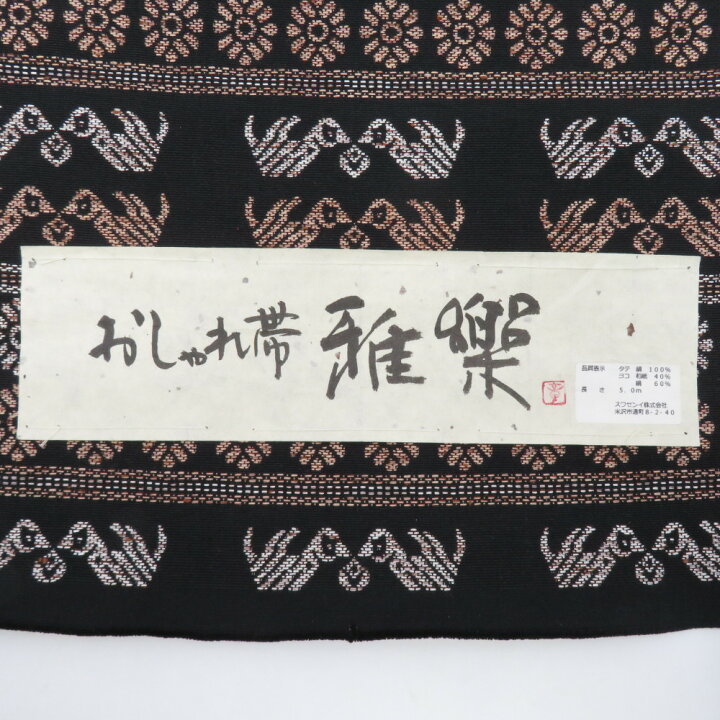 おしゃれ帯 雅樂
品質表示 タテ 絹 100%
ヨコ 和紙 40%
絹 60%
長さ 5.0m
スワセンイ株式会社
米沢市通町8-2-40